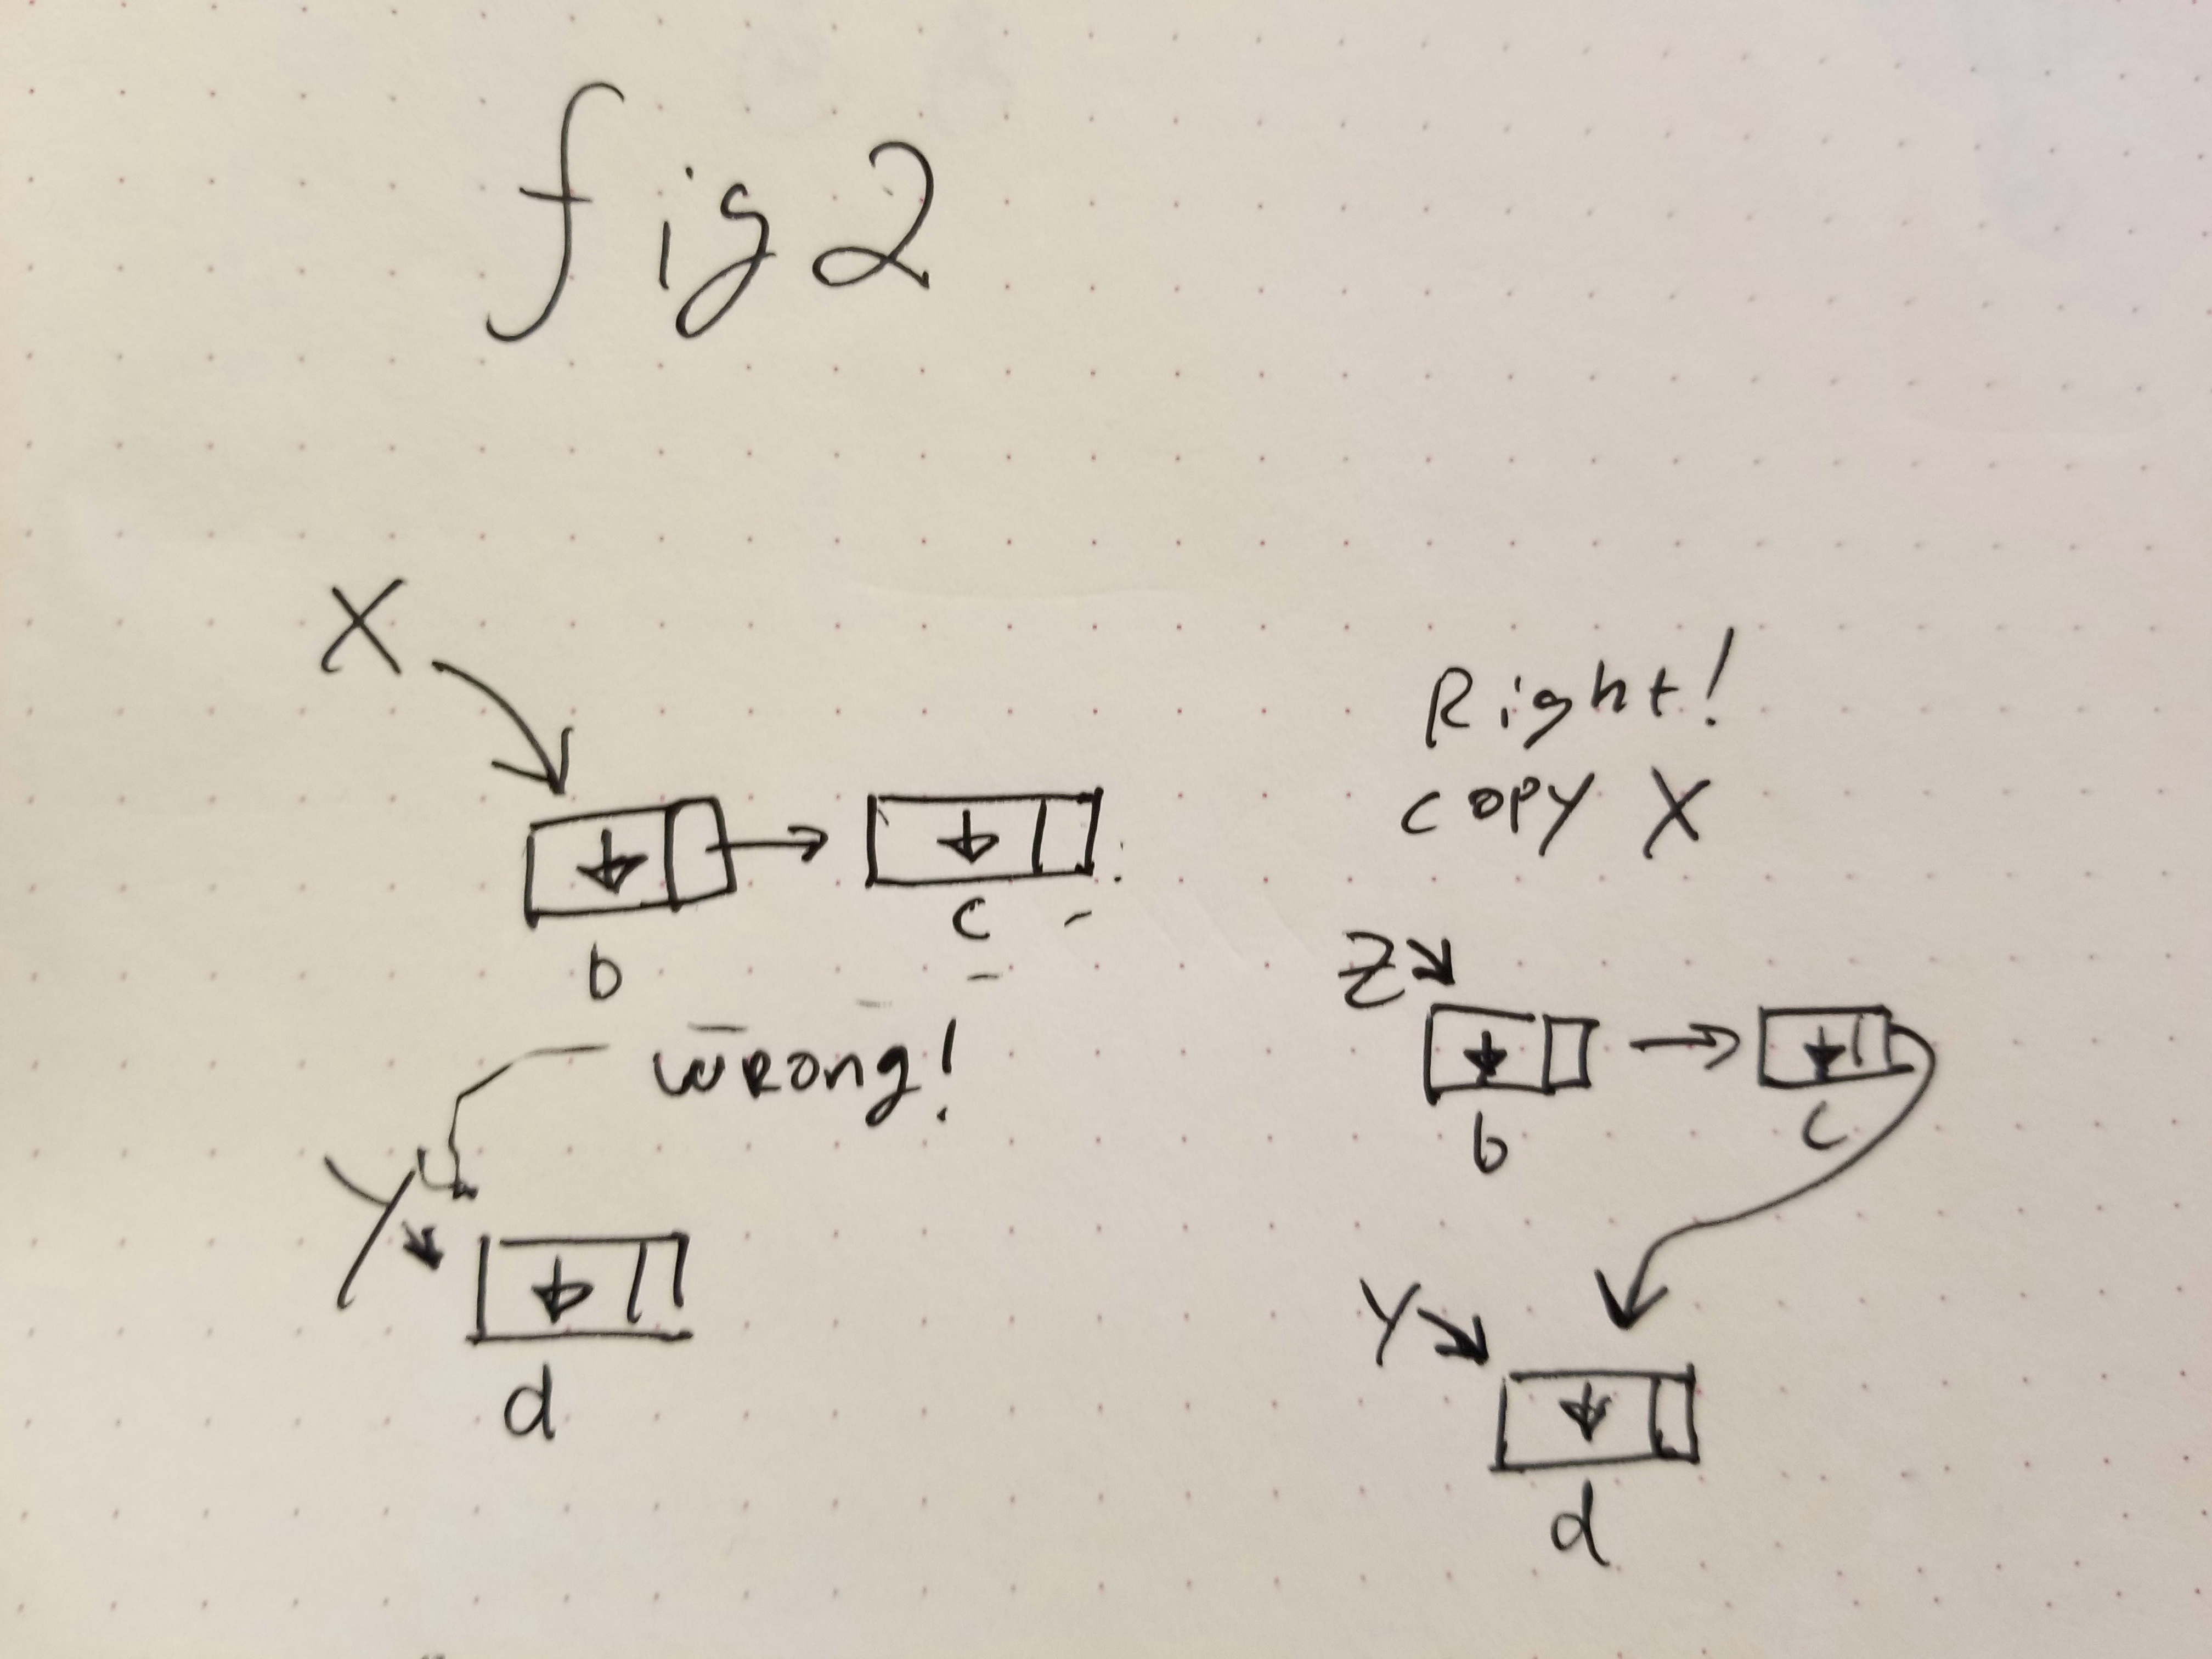 fig 2
X
b
c
wrong!
Y
d
Right!
copy X
Z
b
c
Y
d